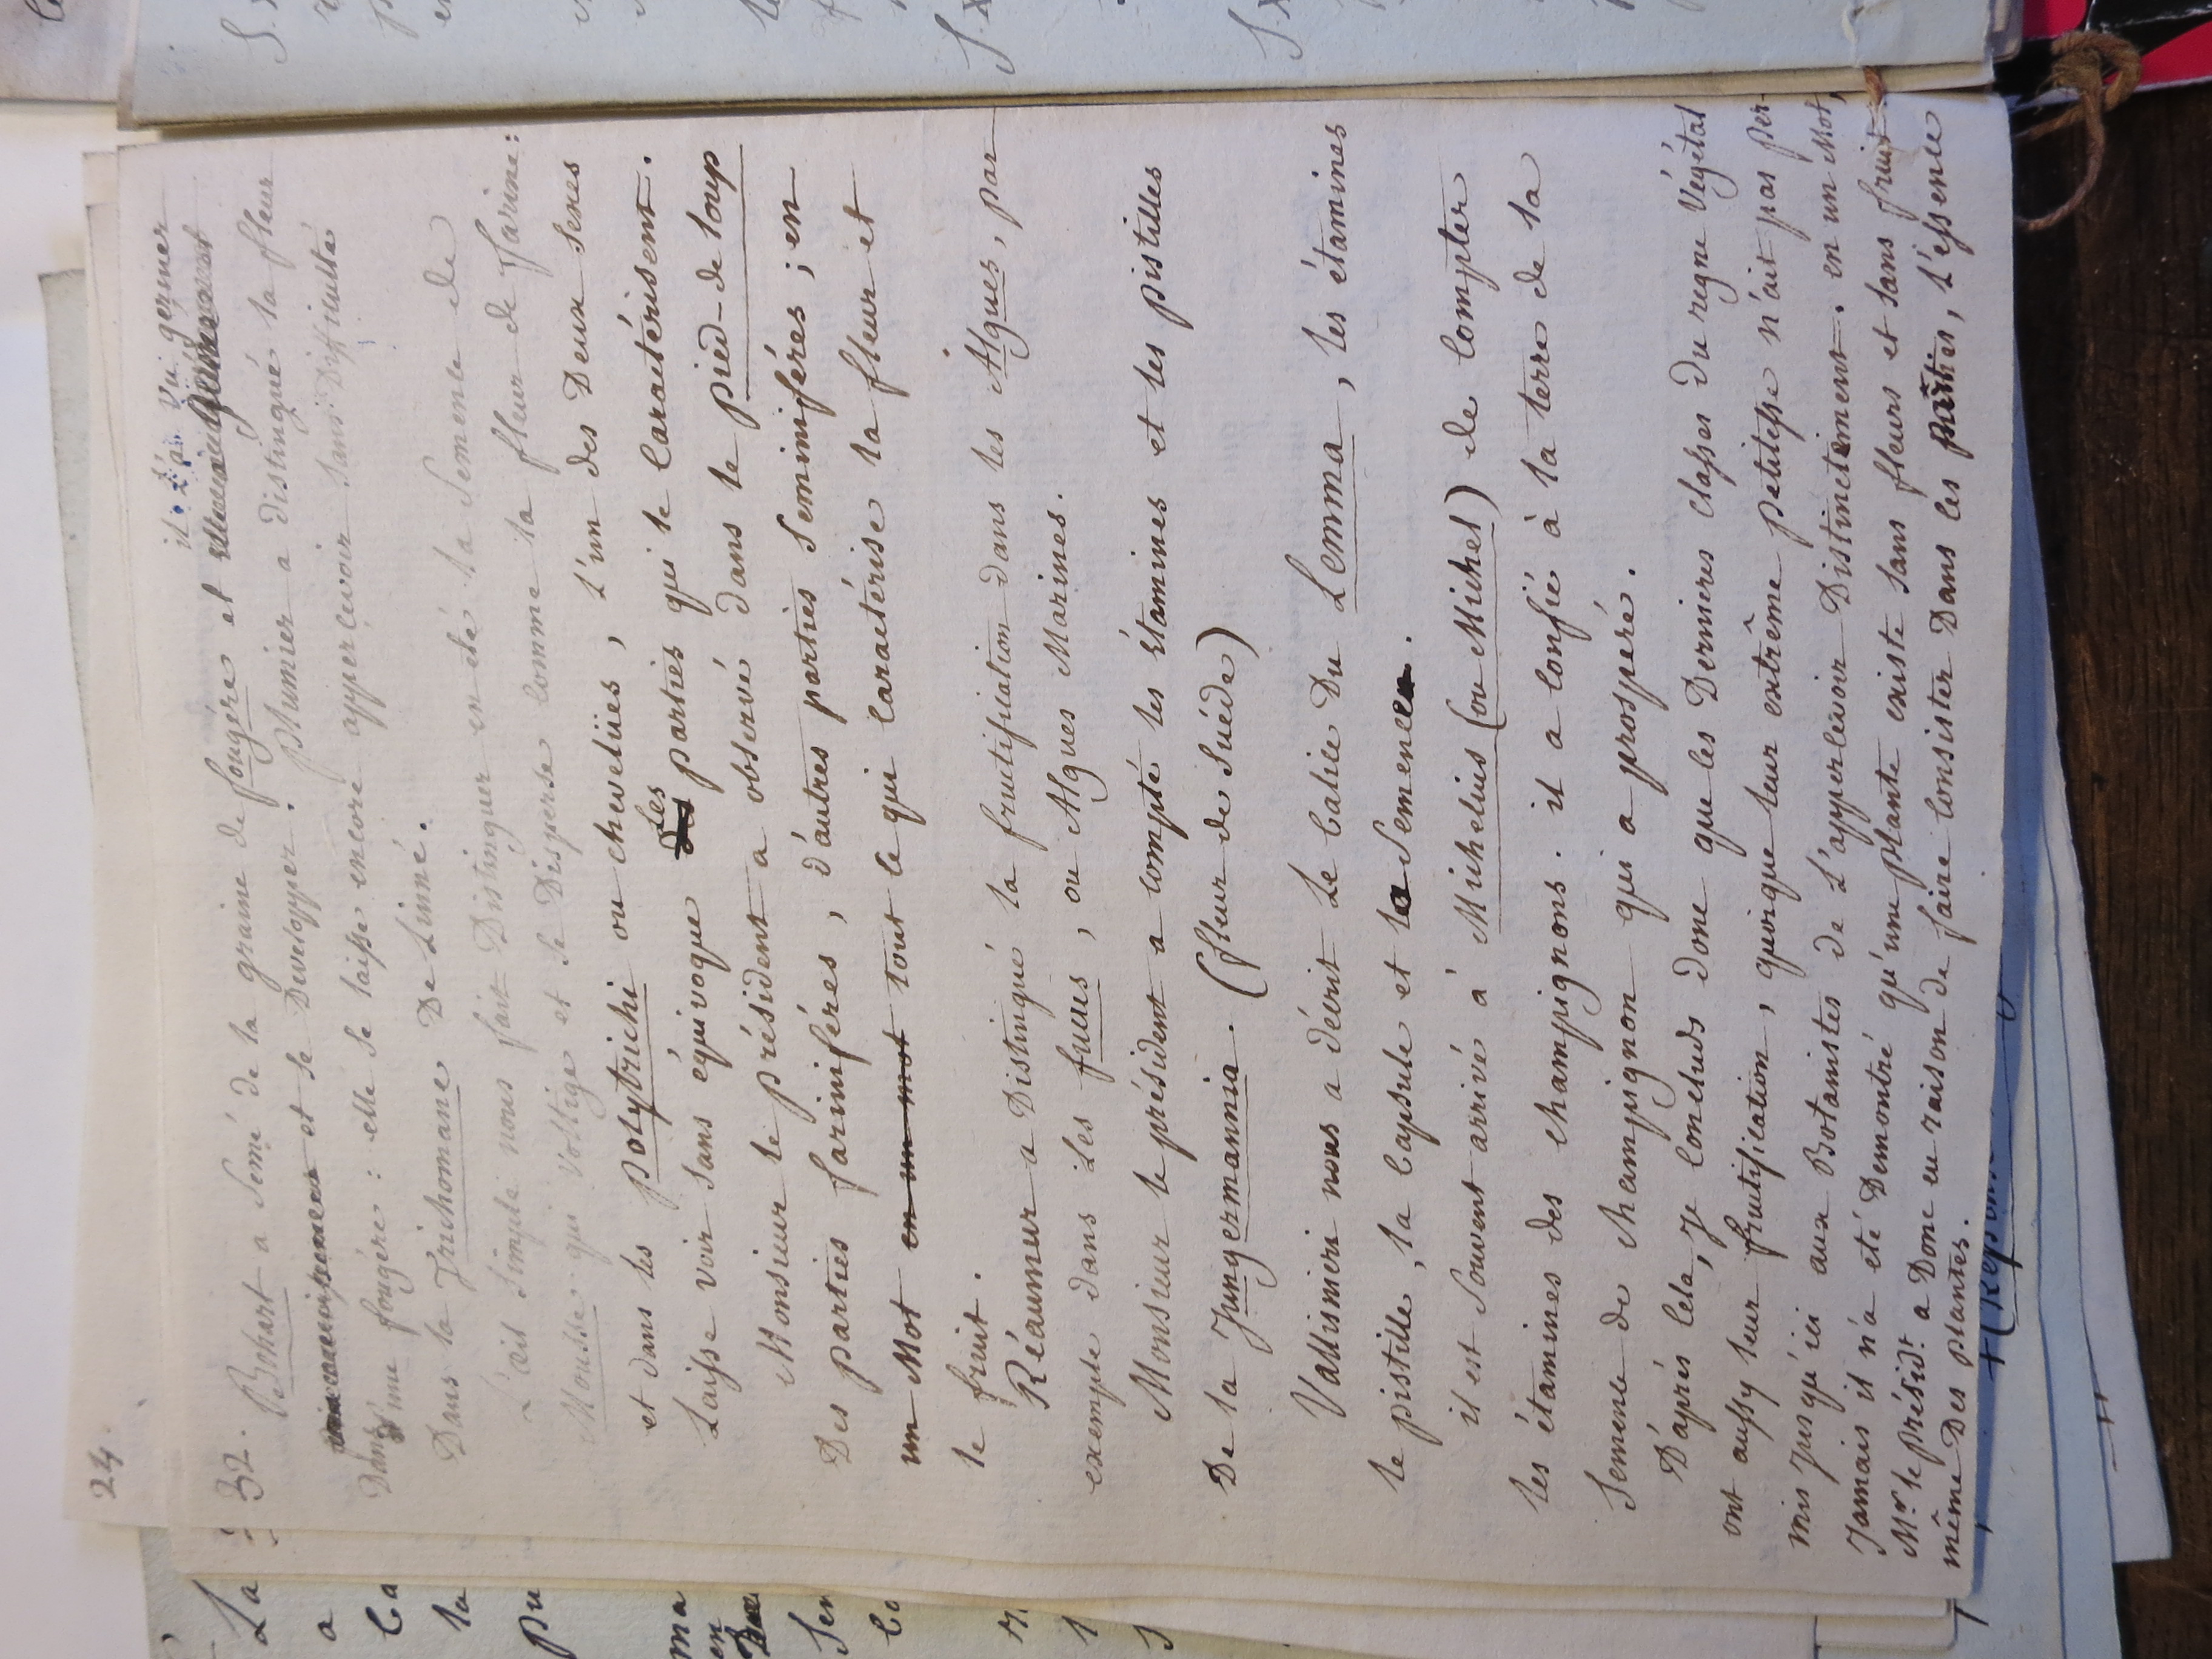 24.
il l'a vu germer
32. Bobart a semé de la graine de fougère et
et se Developper. plumier a distingué la fleur
Dans une fougère : elle se laisse encore appercevoir sans Difficulté
Dans la Trichomane De Linné.
L'œil simple nous fait Distinguer en eté la semence de
Mousse qui voltige et se Disperse comme la fleur de farine:
et dans les polytrichi ou chevelües, l'un des Deux sexes
Laisse voir sans équivoque des Les parties qui le caractérisent.
Monsieur le président a observé dans le pied-de loup
Des parties farinifères, d'autres parties seminifères ; en
un Mot en un mot tout ce qui caractérise la fleur et
le fruit.
Réaumur a Distingué la fructification dans les Algues, par
exemple dans Les fucus, ou Algues Marines.
Monsieur le président a compté les étamines et les pistilles
De la Jungermannia. (fleur de Suéde)
Vallisnieri nous a décrit Le calice Du Lemma, les étamines
le pistille, la capsule et la semence.
il est souvent arrivé à Michelius (ou Michel) de compter
les étamines des champignons. il a confié à la terre de la
semence de champignon qui a prospéré.
D'après cela, je concluds donc que les Dernieres classes du regne Végétal
ont aussy leur fructification, quoique leur extrême petitesse n'ait pas per-
mis jusqu'ici aux Botanistes de L'appercevoir Distinctement. en un Mot,
Jamais il n'a eté Demontré qu'une plante existe sans fleurs et sans fruit
Mr. le présidt. a Donc eu raison de faire consister Dans les parties, l'essence
même Des plantes.